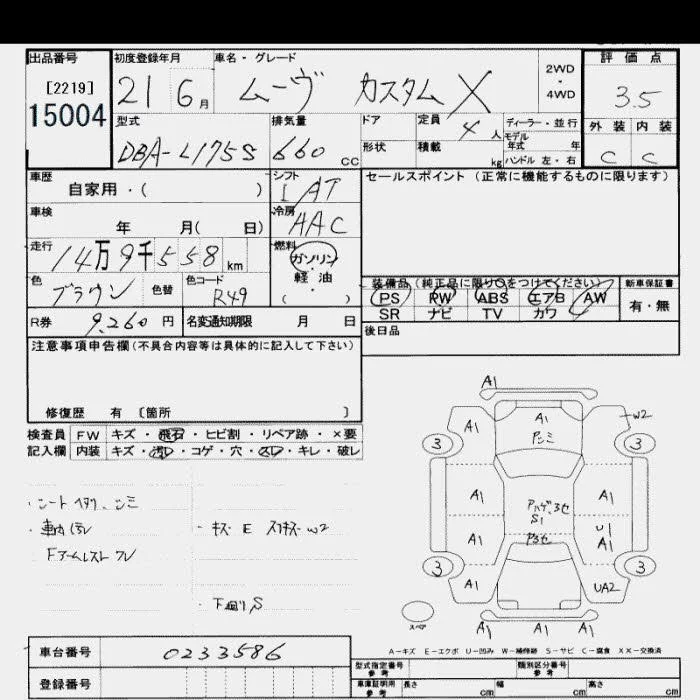 出品番号 初度登録年月 車名・グレード 2WD・4WD 評価点
[2219] 15004 21 6月 ムーヴ カスタム X 3.5
型式 排気量 ドア 定員 4人 ディーラー・並行 外装 内装
DBA-L175S 660cc 形状 積載 kg モデル年式 年 ハンドル 左・右 C C
車歴 自家用・( ) シフト I AT セールスポイント(正常に機能するものに限ります)
車検 年 月( 日) 冷房 AAC
走行 14万9千558km 燃料 ガソリン 軽油 ( )
色 ブラウン 色替 色コード R49
装備品(純正品に限り○をつけてください) 新車保証書
PS PW ABS エアB AW 有・無
SR ナビ TV カワ
R券 9,260円 名変通知期限 月 日 後日品
注意事項申告欄(不具合内容等は具体的に記入して下さい)
修復歴 有 〔箇所 〕
検査員 FW キズ・飛石・ヒビ割・リペア跡・×要
記入欄 内装 キズ・汚レ・コゲ・穴・スレ・キレ・破レ
・シート ヘタリ、シミ
・車内汚レ
・キズ E スリキズ W2
Fアームレスト ワレ
・下廻り S
A1
A1 A1 W2
アンミ
3 3
A1 A1
S1
U1
A1 A1
3 3
A1 UA2
スペア A1 A1 A1
A-キズ E-エクボ U-凹み W-補修跡 S-サビ C-腐食 XX-交換済
車台番号 0233586
登録番号
型式指定番号 参考 類別区分番号 参考
車庫証明用 参考 長さ cm 幅 cm 高さ cm